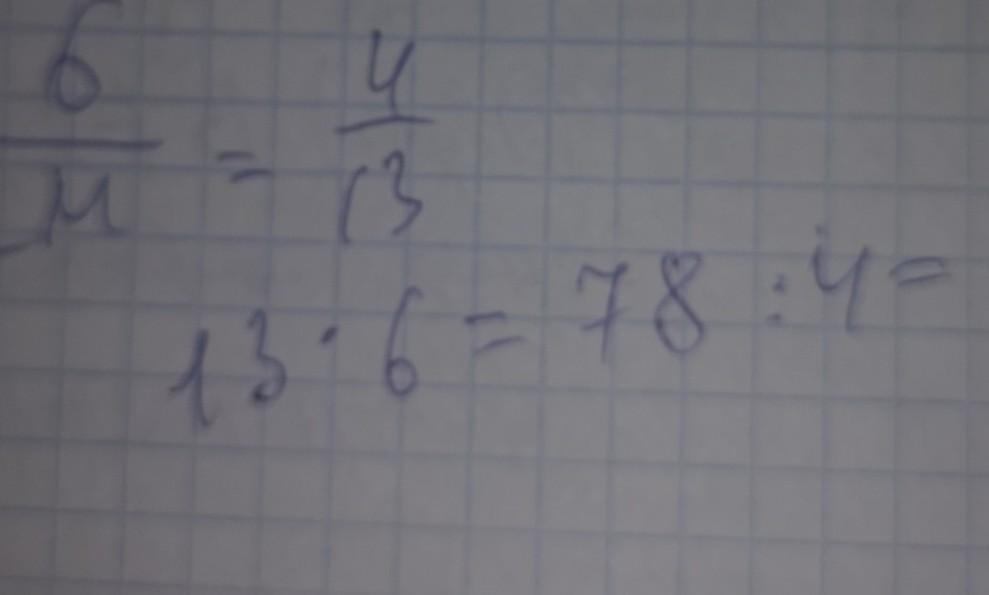 6/м = 4/13
13 · 6 = 78 : 4 =